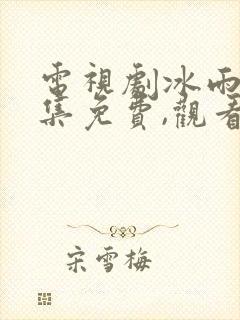 電視劇冰雨
集免費,觀看
宋雪梅